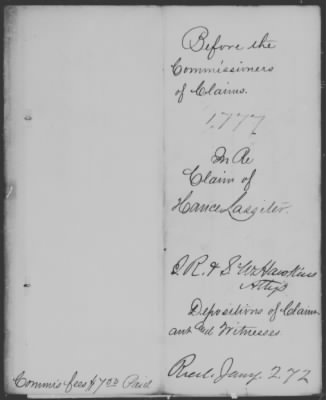 Before the
Commissioners
of Claims.
1,777
In Re
Claim of
Hance Lassiter.
I. R. & S. W. Hawkins
Attys
Depositions of Claim-
ant and Witnesses
Recd. Jany. 2 72
Commis fees $7.00 Paid